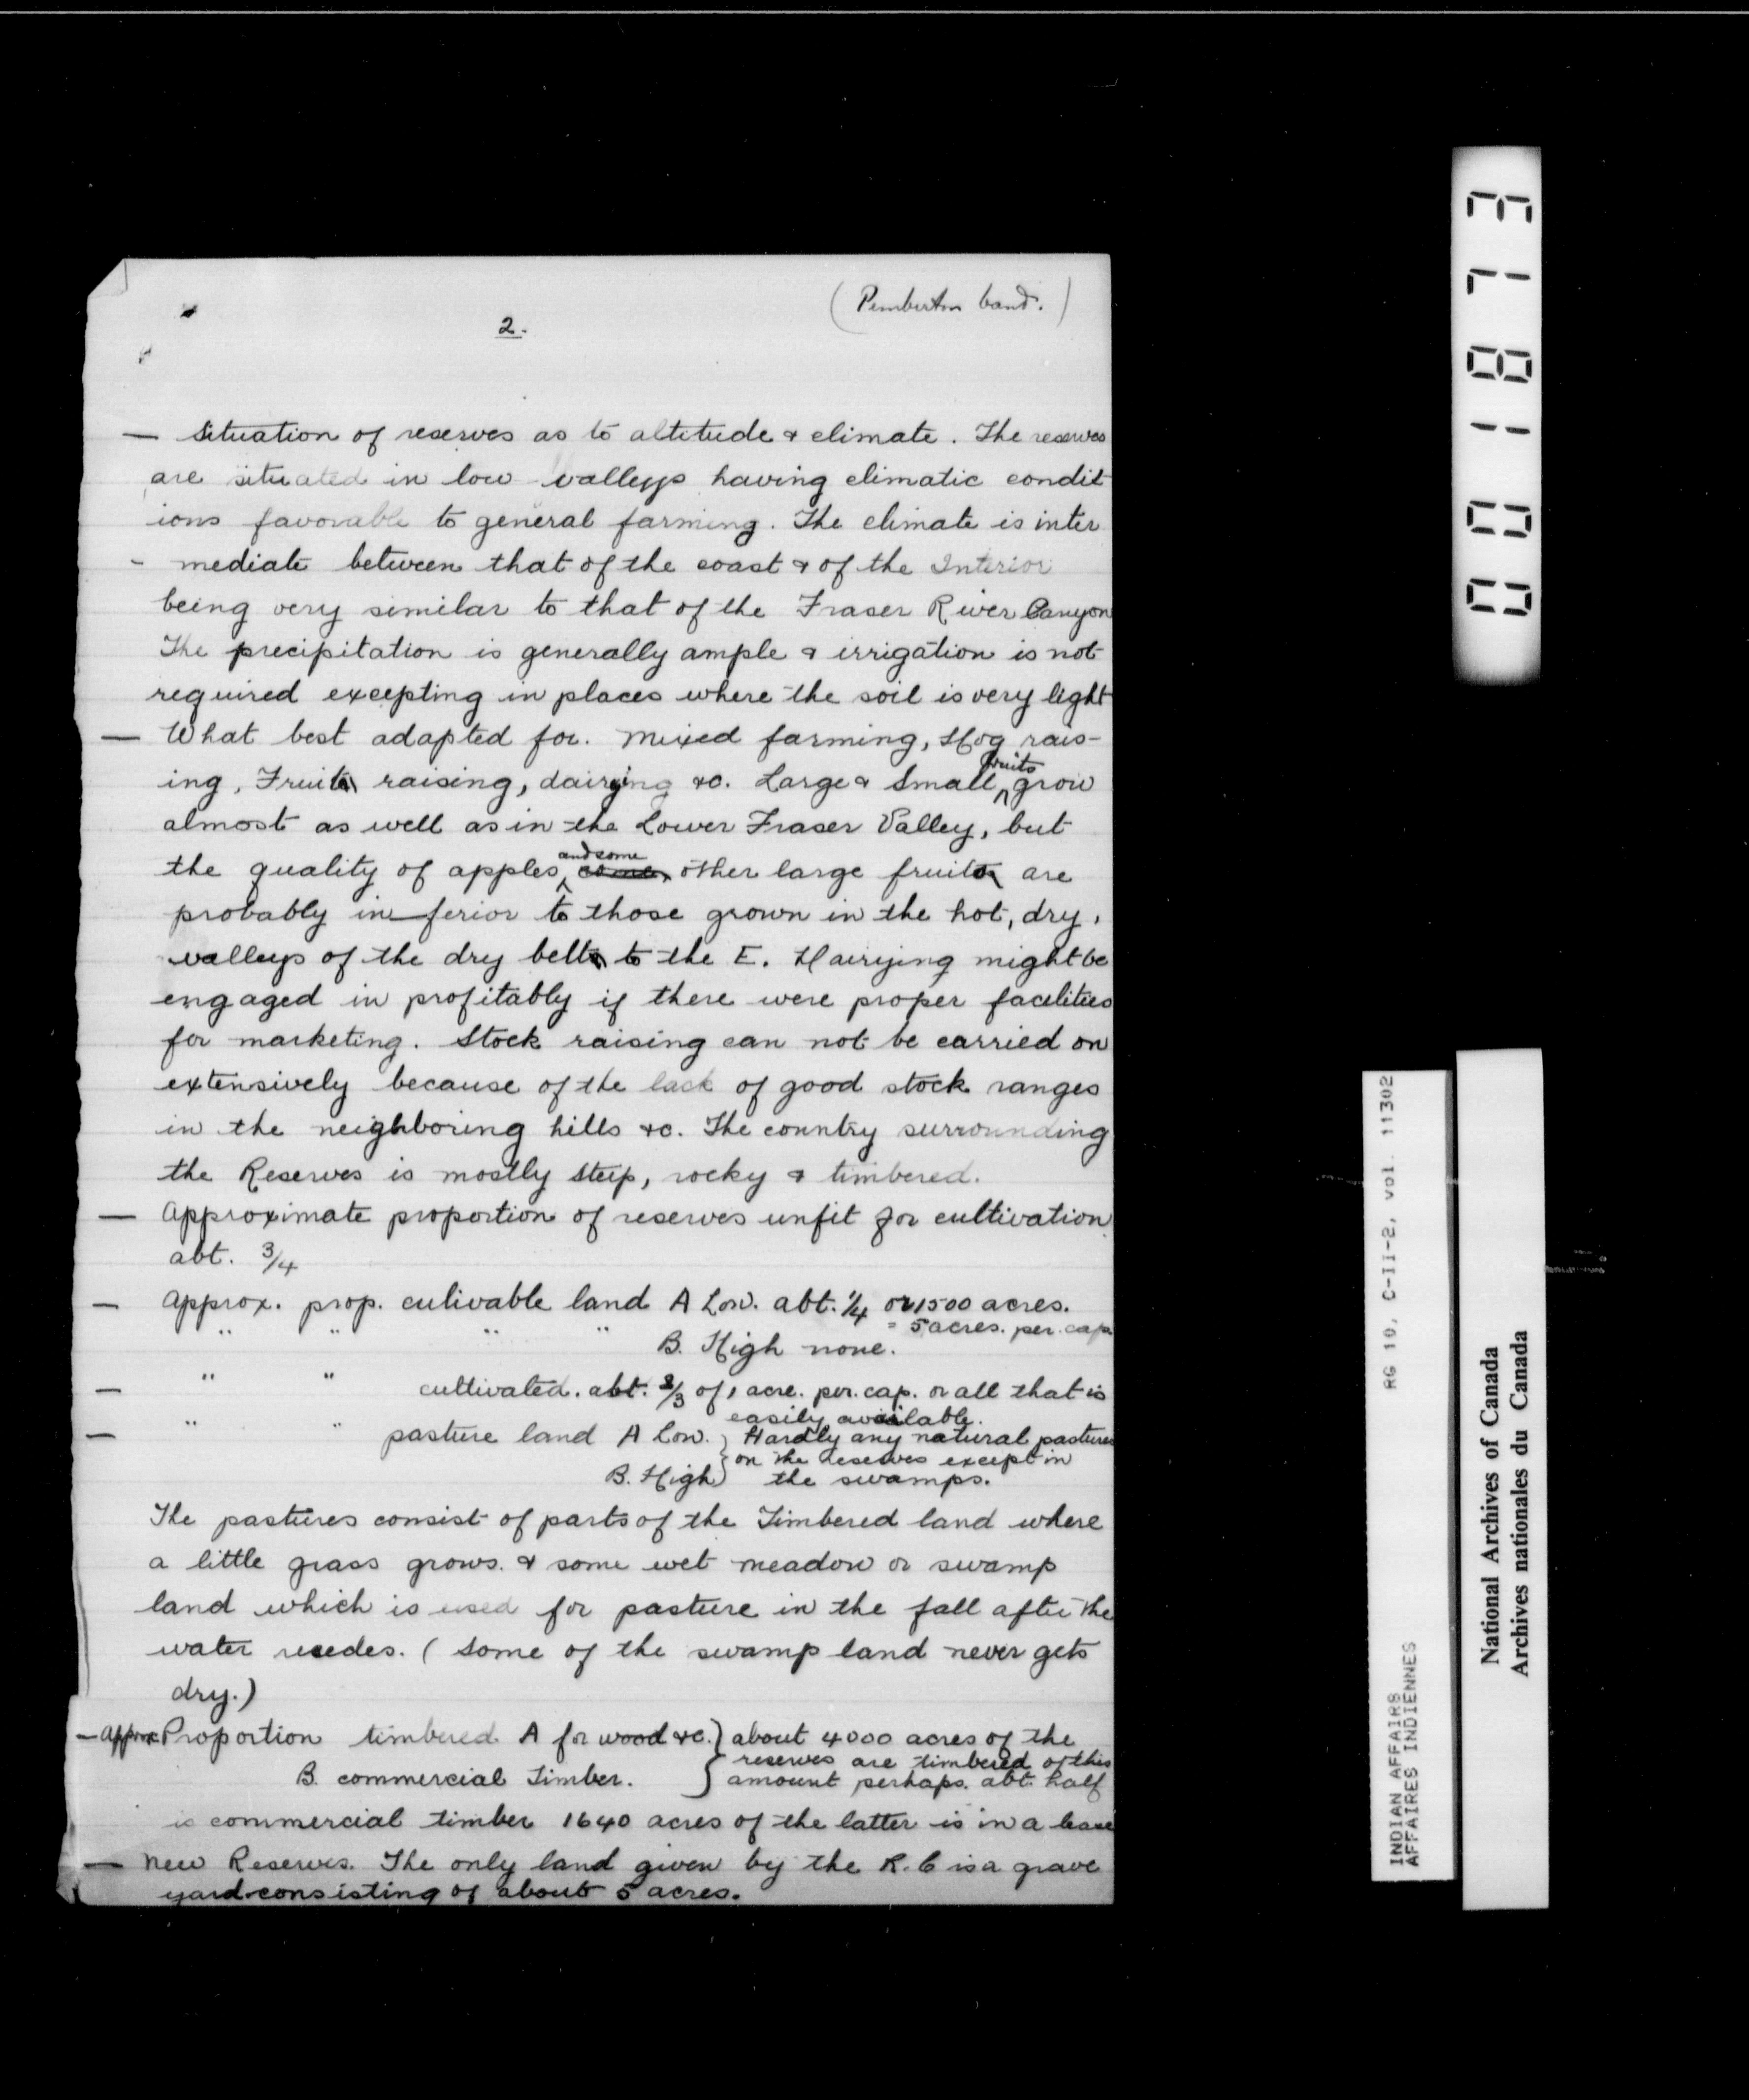 (Pemberton band.)
2.
— Situation of reserves as to altitude & climate. The reserves
are situated in low valleys having climatic condit
ions favorable to general farming. The climate is inter
- mediate between that of the coast & of the Interior
being very similar to that of the Fraser River Canyon
The precipitation is generally ample & irrigation is not
required excepting in places where the soil is very light
— What best adapted for. Mixed farming, Hog rais-
ing, Fruit raising, dairying &c. Large & Small fruits grow
almost as well as in the Lower Fraser Valley, but
the quality of apples, and some other large fruits are
probably inferior to those grown in the hot, dry,
valleys of the dry belt to the E. Hairying might be
engaged in profitably if there were proper facilities
for marketing. Stock raising can not be carried on
extensively because of the lack of good stock ranges
in the neighboring hills &c. The country surrounding
the Reserves is mostly steep, rocky & timbered.
— Approximate proportion of reserves unfit for cultivation
abt. 3/4
— Approx. prop. culivable land A Low. abt. 1/4 or 1500 acres.
= 5 acres. per. cap.
" " " " B. High none.
— " " cultivated. abt. 2/3 of 1 acre. per. cap. or all that is
easily available.
— " " pasture land A Low. } Hardly any natural pastures
on the Reserves except in
B. High } the swamps.
The pastures consist of parts of the Timbered land where
a little grass grows. & some wet meadow or swamp
land which is used for pasture in the fall after the
water recedes. (Some of the swamp land never gets
dry.)
— Approx Proportion timbered A for wood &c. } about 4000 acres of the
reserves are timbered of this
B. commercial Timber. } amount perhaps. abt. half
is commercial timber 1640 acres of the latter is in a lease
— New Reserves. The only land given by the R.C is a grave
yard consisting of about 5 acres.
001873
RG 10, C-II-2, vol. 11302
INDIAN AFFAIRS
AFFAIRES INDIENNES
National Archives of Canada
Archives nationales du Canada